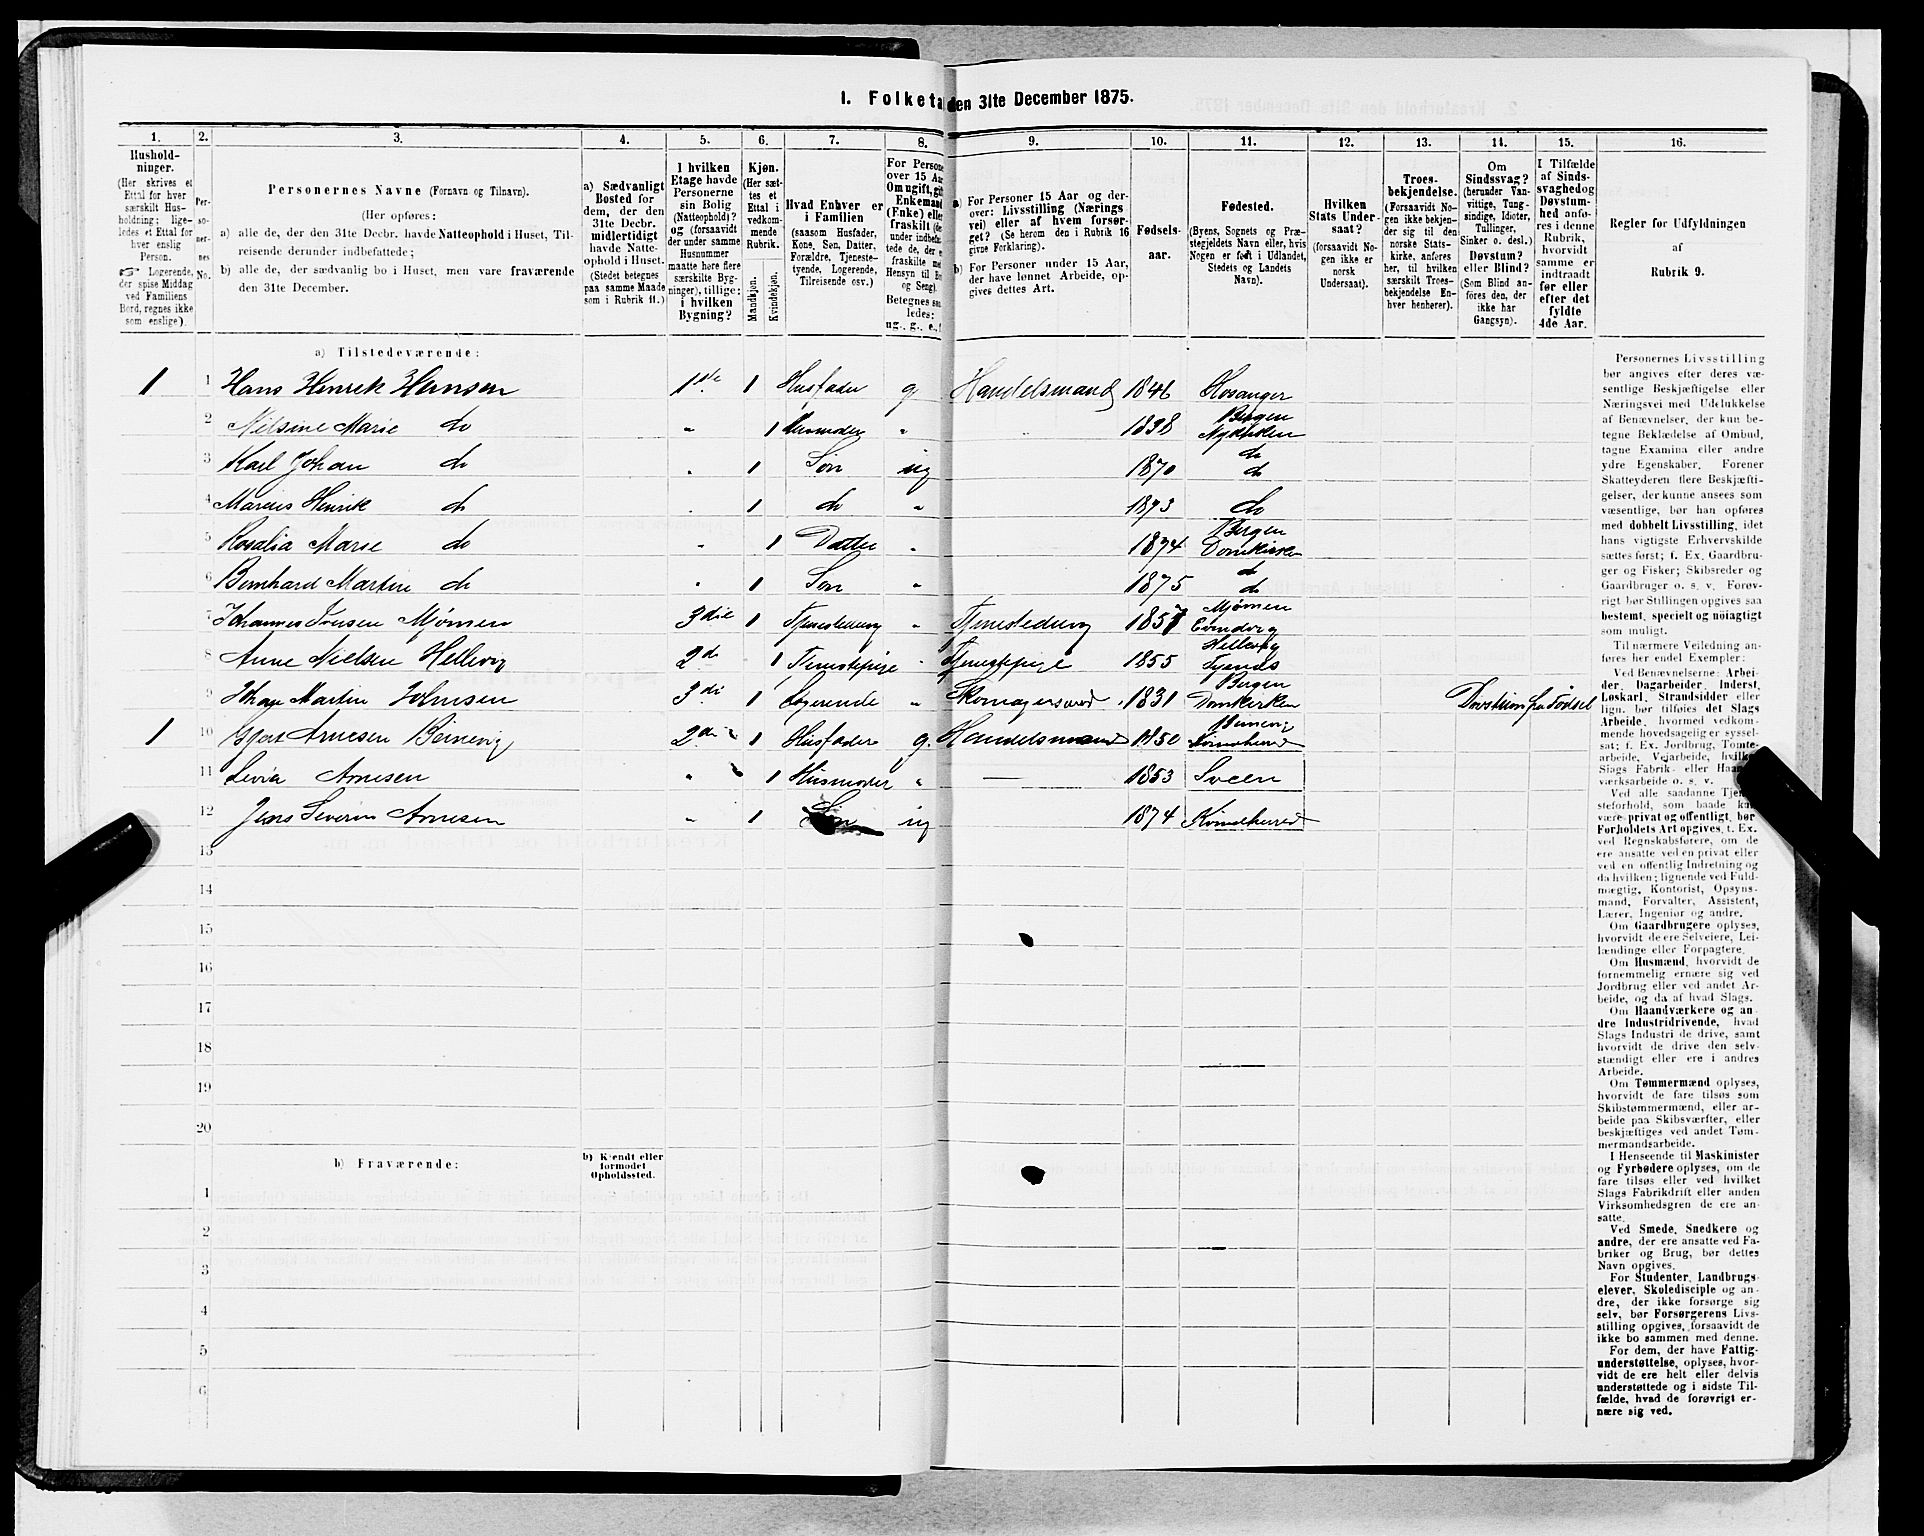 1. Folketa den 31te December 1875.
1.
Hushold-
ninger.
(Her skrives et
Ettal for hver
særskilt Hus-
holdning; lige-
ledes et Ettal for
hver enslig
Person.
☞ Logerende,
der spise Middag
ved Familiens
Bord, regnes ikke
som enslige).
2.
Per-
so-
ner-
nes
No.
3.
Personernes Navne (Fornavn og Tilnavn).
(Her opføres:
a) alle de, der den 31te Decbr. havde Natteophold i Huset, Til-
reisende derunder indbefattede;
b) alle de, der sædvanlig bo i Huset, men vare fraværende
den 31te December.
4.
a) Sædvanligt
Bosted for
dem, der den
31te Decbr.
midlertidigt
havde Natte-
ophold i Huset.
(Stedet betegnes
paa samme Maade
som i Rubrik 11.)
5.
I hvilken
Etage havde
Personerne
sin Bolig
(Natteophold)?
og (forsaavidt
der under samme
Husnummer
maatte høre flere
særskilte Byg-
ninger), tillige:
i hvilken
Bygning?
6.
Kjøn.
(Her sæt-
tes et
Ettal i
vedkom-
mende
Rubrik.
Mandkjøn.
Kvindekjøn.
7.
Hvad Enhver er
i Familien
(saasom Husfader,
Kone, Søn, Datter,
Forældre, Tjeneste-
tyende, Logerende,
Tilreisende osv.)
8.
For Persone
over 15 Aa
Om ugift, gif
Enkemand
(Enke) elle
fraskilt (de
under indbefa
tede de, der e
fraskilte me
Hensyn til Bo
og Seng).
Betegnes saa
ledes:
ug., g., e., f
9.
a) For Personer 15 Aar og der-
over: Livsstilling (Nærings
vei) eller af hvem forsør-
get? (Se herom den i Rubrik 16
givne Forklaring).
b) For Personer under 15 Aar,
der have lønnet Arbeide, op-
gives dettes Art.
10.
Fødsels-
aar.
11.
Fødested.
(Byens, Sognets og Præ-
stegjeldets Navn eller, hvis
Nogen er født i Udlandet,
Stedets og Landets
Navn).
12.
Hvilken
Stats Under-
saat?
(forsaavidt No-
gen ikke er
norsk
Undersaat).
13.
Troes-
bekjendelse.
(Forsaavidt No-
gen ikke bekjen-
der sig til den
norske Stats-
kirke, anføres
her, til hvilken
særskilt Troes-
bekjendelse En-
hver henhører).
14.
Om
Sindssvag?
(herunder Van-
vittige, Tung-
sindige, Idioter,
Tullinger,
Sinker o. desl.)
Døvstum?
eller Blind?
(Som Blind an-
føres den, der
ikke har
Gangsyn).
15.
I Tilfælde
af Sinds-
svaghed og
Døvstum-
hed anfø-
res i denne
Rubrik,
hvorvidt
samme er
indtraadt
før eller
efter det
fyldte
4de Aar.
16.
Regler for Udfyldningen
af
Rubrik 9.
a) Tilstedeværende:
1 1 Hans Henrik Hansen 1ste 1 Husfader g Handelsmand 1846 Hosanger
2 Nilsine Marie do " 1 Husmoder " 1838 Bergen Nykirken
3 Karl Johan do " 1 Søn ug 1870 do do
4 Marius Henrik do " 1 do " 1873 do
5 Rosalia Marie do " 1 Datter " 1874 Bergen Domkirken
6 Bernhard Martin do " 1 Søn " 1875 do do
7 Johannes Mjømen 3die 1 Tjenestedreng " Tjenestedreng 1857 Mjømen Evindvig
8 Anne Nielsen Hellevig 2de 1 Tjenestepige " Tjenestepige 1855 Hellevig
9 Johan Martin Johnsen 3die 1 Logerende " Skomagersvend 1831 Bergen Domkirken Døvstum fra Fødsel
1 10 Gjert Arnesen Bernevig 2den 1 Husfader g. Handelsmand 1850 Kvindherred
11 Sevia Arnesen " 1 Husmoder " — 1853 Sveen
12 Jens Severin Arnesen " 1 Søn ug 1874 Kvindherred
13
14
15
16
17
18
19
20
b) Fraværende:
b) Kjendt eller
formodet
Opholdssted.
1
2
3
4
5
6
Personernes Livsstilling
bør angives efter deres væ-
sentlige Beskjæftigelse eller
Næringsvei med Udelukkelse
af Benævnelser, der kun be-
tegne Beklædelse af Ombud,
tagne Examina eller andre
ydre Egenskaber. Forener
Skatteyderen flere Beskjæfti-
gelser, der kunne ansees som
væsentlige, bør han opføres
med dobbelt Livsstilling, idet
hans vigtigste Erhvervskilde
sættes først; f. Ex. Gaardbru-
ger og Fisker; Skibsreder og
Gaardbruger o. s. v. Forøv-
rigt bør Stillingen opgives saa
bestemt, specielt og nöiagtigt
som muligt.
Til nærmere Veiledning an-
føres her endel Exempler:
Ved Benævnelserne: Arbei-
der, Dagarbeider, Inderst,
Løskarl, Strandsidder eller
lign. bør tilføies det Slags
Arbeide, hvormed vedkom-
mende hovedsagelig er syssel-
sat; f. Ex. Jordbrug, Tomte-
arbeide, Veiarbeide, hvilke
Slags Fabrik- eller Haand-
værksarbeide o. s. v.
Ved alle saadanne Tjene-
steforhold, som baade kan
være privat og offentligt, bør
Forholdets Art opgives, f. Ex.
ved Regnskabsførere, om de
ere ansatte ved en privat eller
ved en offentlig Indretning og
da hvilken; lignende ved Fuld-
mægtig, Kontorist, Opsyns-
mand, Forvalter, Assistent,
Lærer, Ingeniør og andre.
Om Gaardbrugere oplyses,
hvorvidt de ere Selveiere, Lei-
lændinge eller Forpagtere.
Om Husmænd, hvorvidt de
fornemmelig ernære sig ved
Jordbrug eller ved andet Ar-
beide, og da af hvad Slags.
Om Haandværkere og an-
dre Industridrivende, hvad
Slags Industri de drive, samt
hvorvidt de drive den selv-
stændigt eller ere i andres
Arbeide.
Om Tømmermænd oplyses,
hvorvidt de fare tilsøs som
Skibstømmermænd, eller ar-
beide paa Skibsværfter, eller
beskjæftiges ved andet Tøm-
mermandsarbeide.
I Henseende til Maskinister
og Fyrbødere oplyses, om de
fare tilsøs eller ved hvilket
Slags Fabrikdrift eller anden
Virksomhedsgren de ere an-
satte.
Ved Smede, Snedkere og
andre, der ere ansatte ved Fa-
briker og Brug, bør dettes
Navn opgives.
For Studenter, Landbrugs-
elever, Skoledisciple og an-
dre, der ikke forsørge sig
selv, bør Forsørgerens Livs-
stilling opgives, forsaavidt de
ikke bo sammen med denne.
For dem, der have Fattig-
understøttelse, oplyses, hvor-
vidt de ere helt eller delvis
understøttede og i sidste Til-
fælde, hvad de forøvrigt er-
nære sig ved.